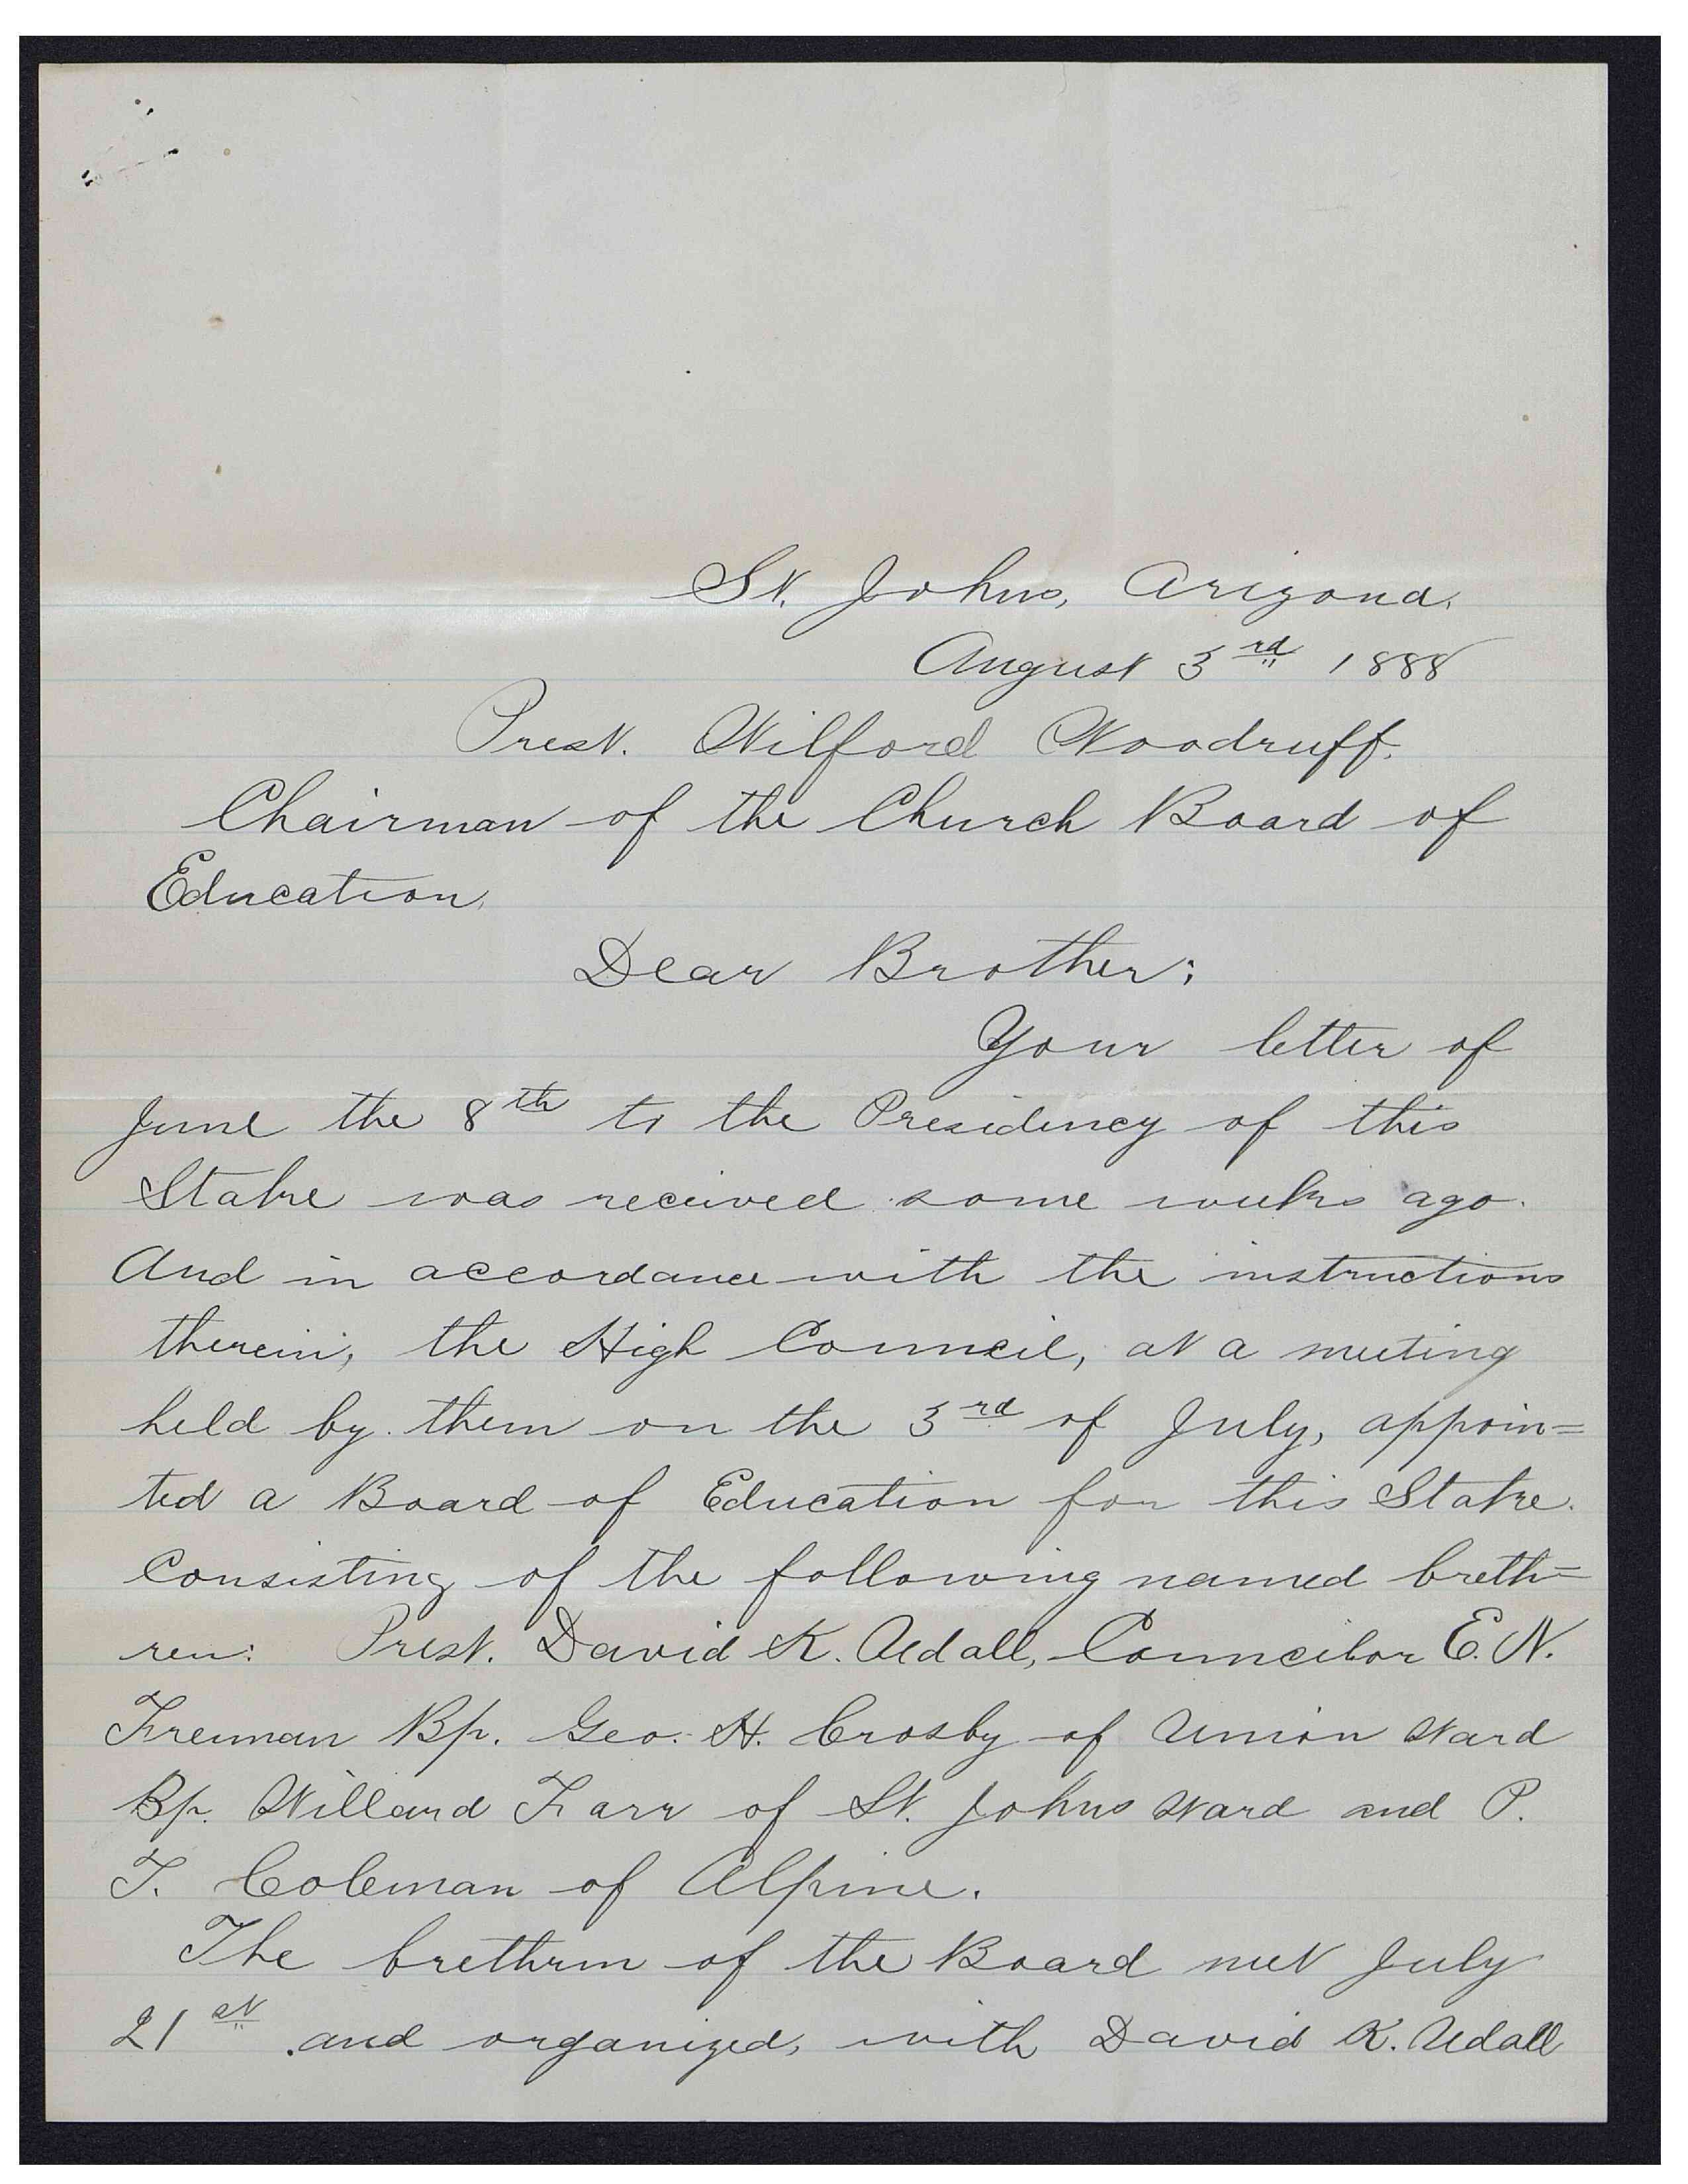 St. Johns, Arizona.
August 3rd 1888
Prest. Wilford Woodruff.
Chairman of the Church Board of
Education.
Dear Brother;
Your letter of
June the 8th to the Presidency of this
Stake was received some weeks ago.
And in accordance with the instructions
therein, the High Council, at a meeting
held by them on the 3rd of July, appoin=
ted a Board of Education for this Stake.
Consisting of the following named breth=
ren: Prest. David K. Udall, Councilor E. N.
Freeman Bp. Geo. H. Crosby of Union Ward
Bp. Willard Farr of St. Johns Ward and P.
T. Coleman of Alpine.
The brethren of the Board met July
21st and organized, with David K. Udall